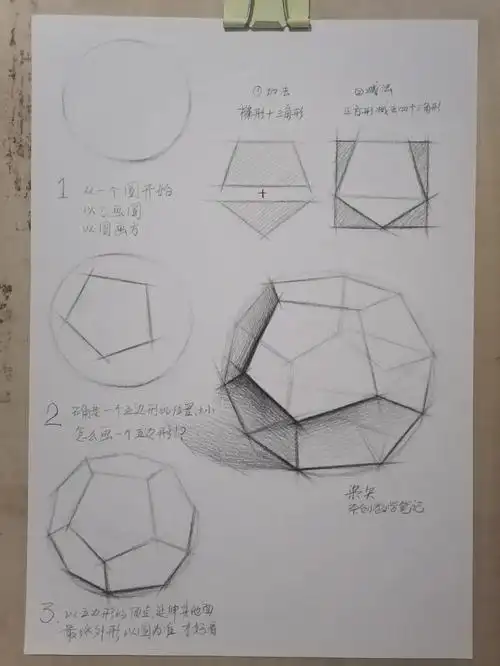 ①加法
梯形+三角形
②减法
正方形减去四个三角形
+
1 从一个圆开始
以方画圆
以圆画方
2 确定一个五边形的位置大小
怎么画一个五边形!?
3. 以五边形的顶点延伸其他面
最终外形以圆为准 才好看
教学笔记